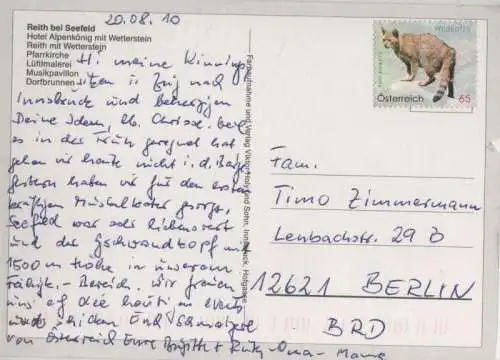 20.08.10
Reith bei Seefeld
Hotel Alpenkönig mit Wetterstein
Reith mit Wetterstein
Pfarrkirche
Lüftlmalerei
Musikpavillon
Dorfbrunnen
Hi meine
sitzen i. Zug nach
Innsbruck und beherzigen
Deine Ideen, lb. Chrisse. weil
es in der Früh geregnet hat
gehen wir heute nicht i. d. Berge
gestern haben wir für den ersten
kräftigen Muskelkater gesorgt,
Seefeld war sehr
und der Gschwandtkopf mit
1500 m Höhe in unserem
Bereich. Wir freuen
uns auf die
und
von Österreich Eure Brigitte + Oma
Farbaufnahme und Verlag Innsbruck
Wildkatze
Österreich 65
Fam.
Timo Zimmermann
Lenbachstr. 29 B
12621 BERLIN
BRD